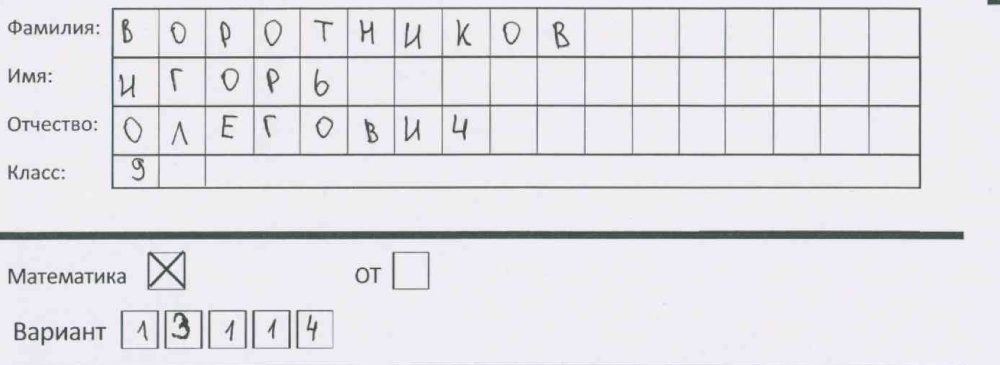 Фамилия: ВОРОТНИКОВ
Имя: ИГОРЬ
Отчество: ОЛЕГОВИЧ
Класс: 9
Математика ☒ ОТ ☐
Вариант 13114